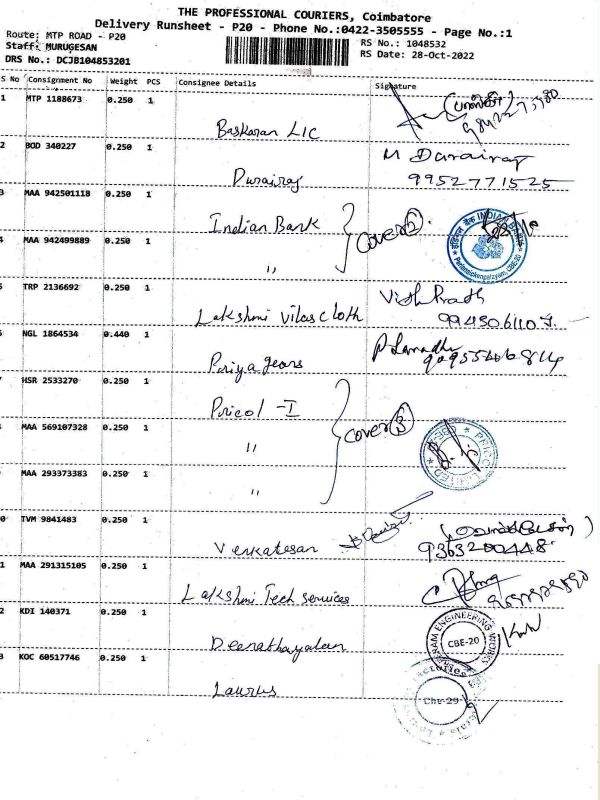 THE PROFESSIONAL COURIERS, Coimbatore
Delivery Runsheet - P20 - Phone No.:0422-3505555 - Page No.:1
Route: MTP ROAD - P20
Staff: MURUGESAN
RS No.: 1048532
DRS No.: DCJB104853201
RS Date: 28-Oct-2022
S No Consignment No Weight PCS Consignee Details Signature
1 MTP 1188673 0.250 1
Baskaran LIC
2 BOD 340227 0.250 1 M Durairaj
Durairaj 9952771525
3 MAA 942501118 0.250 1 Indian Bank
Cover 2
INDIAN BANK
4 MAA 942499889 0.250 1
"
TRP 2136692 0.250 1
Lakshmi Vilas Cloth
NGL 1864534 0.440 1
Priya gears
HSR 2533270 0.250 1 Pricol -I
Cover 3
MAA 569107328 0.250 1
"
PRICOL LIMITED
MAA 293373383 0.250 1
"
0 TVM 9841483 0.250 1
Venkatesan 9363200448
1 MAA 291315105 0.250 1
Lakshmi Tech services
2 KDI 140371 0.250 1
Deenathayalan
ENGINEERING WORKS
CBE-20
3 KOC 60517746 0.250 1
Laurus
Cbe-29